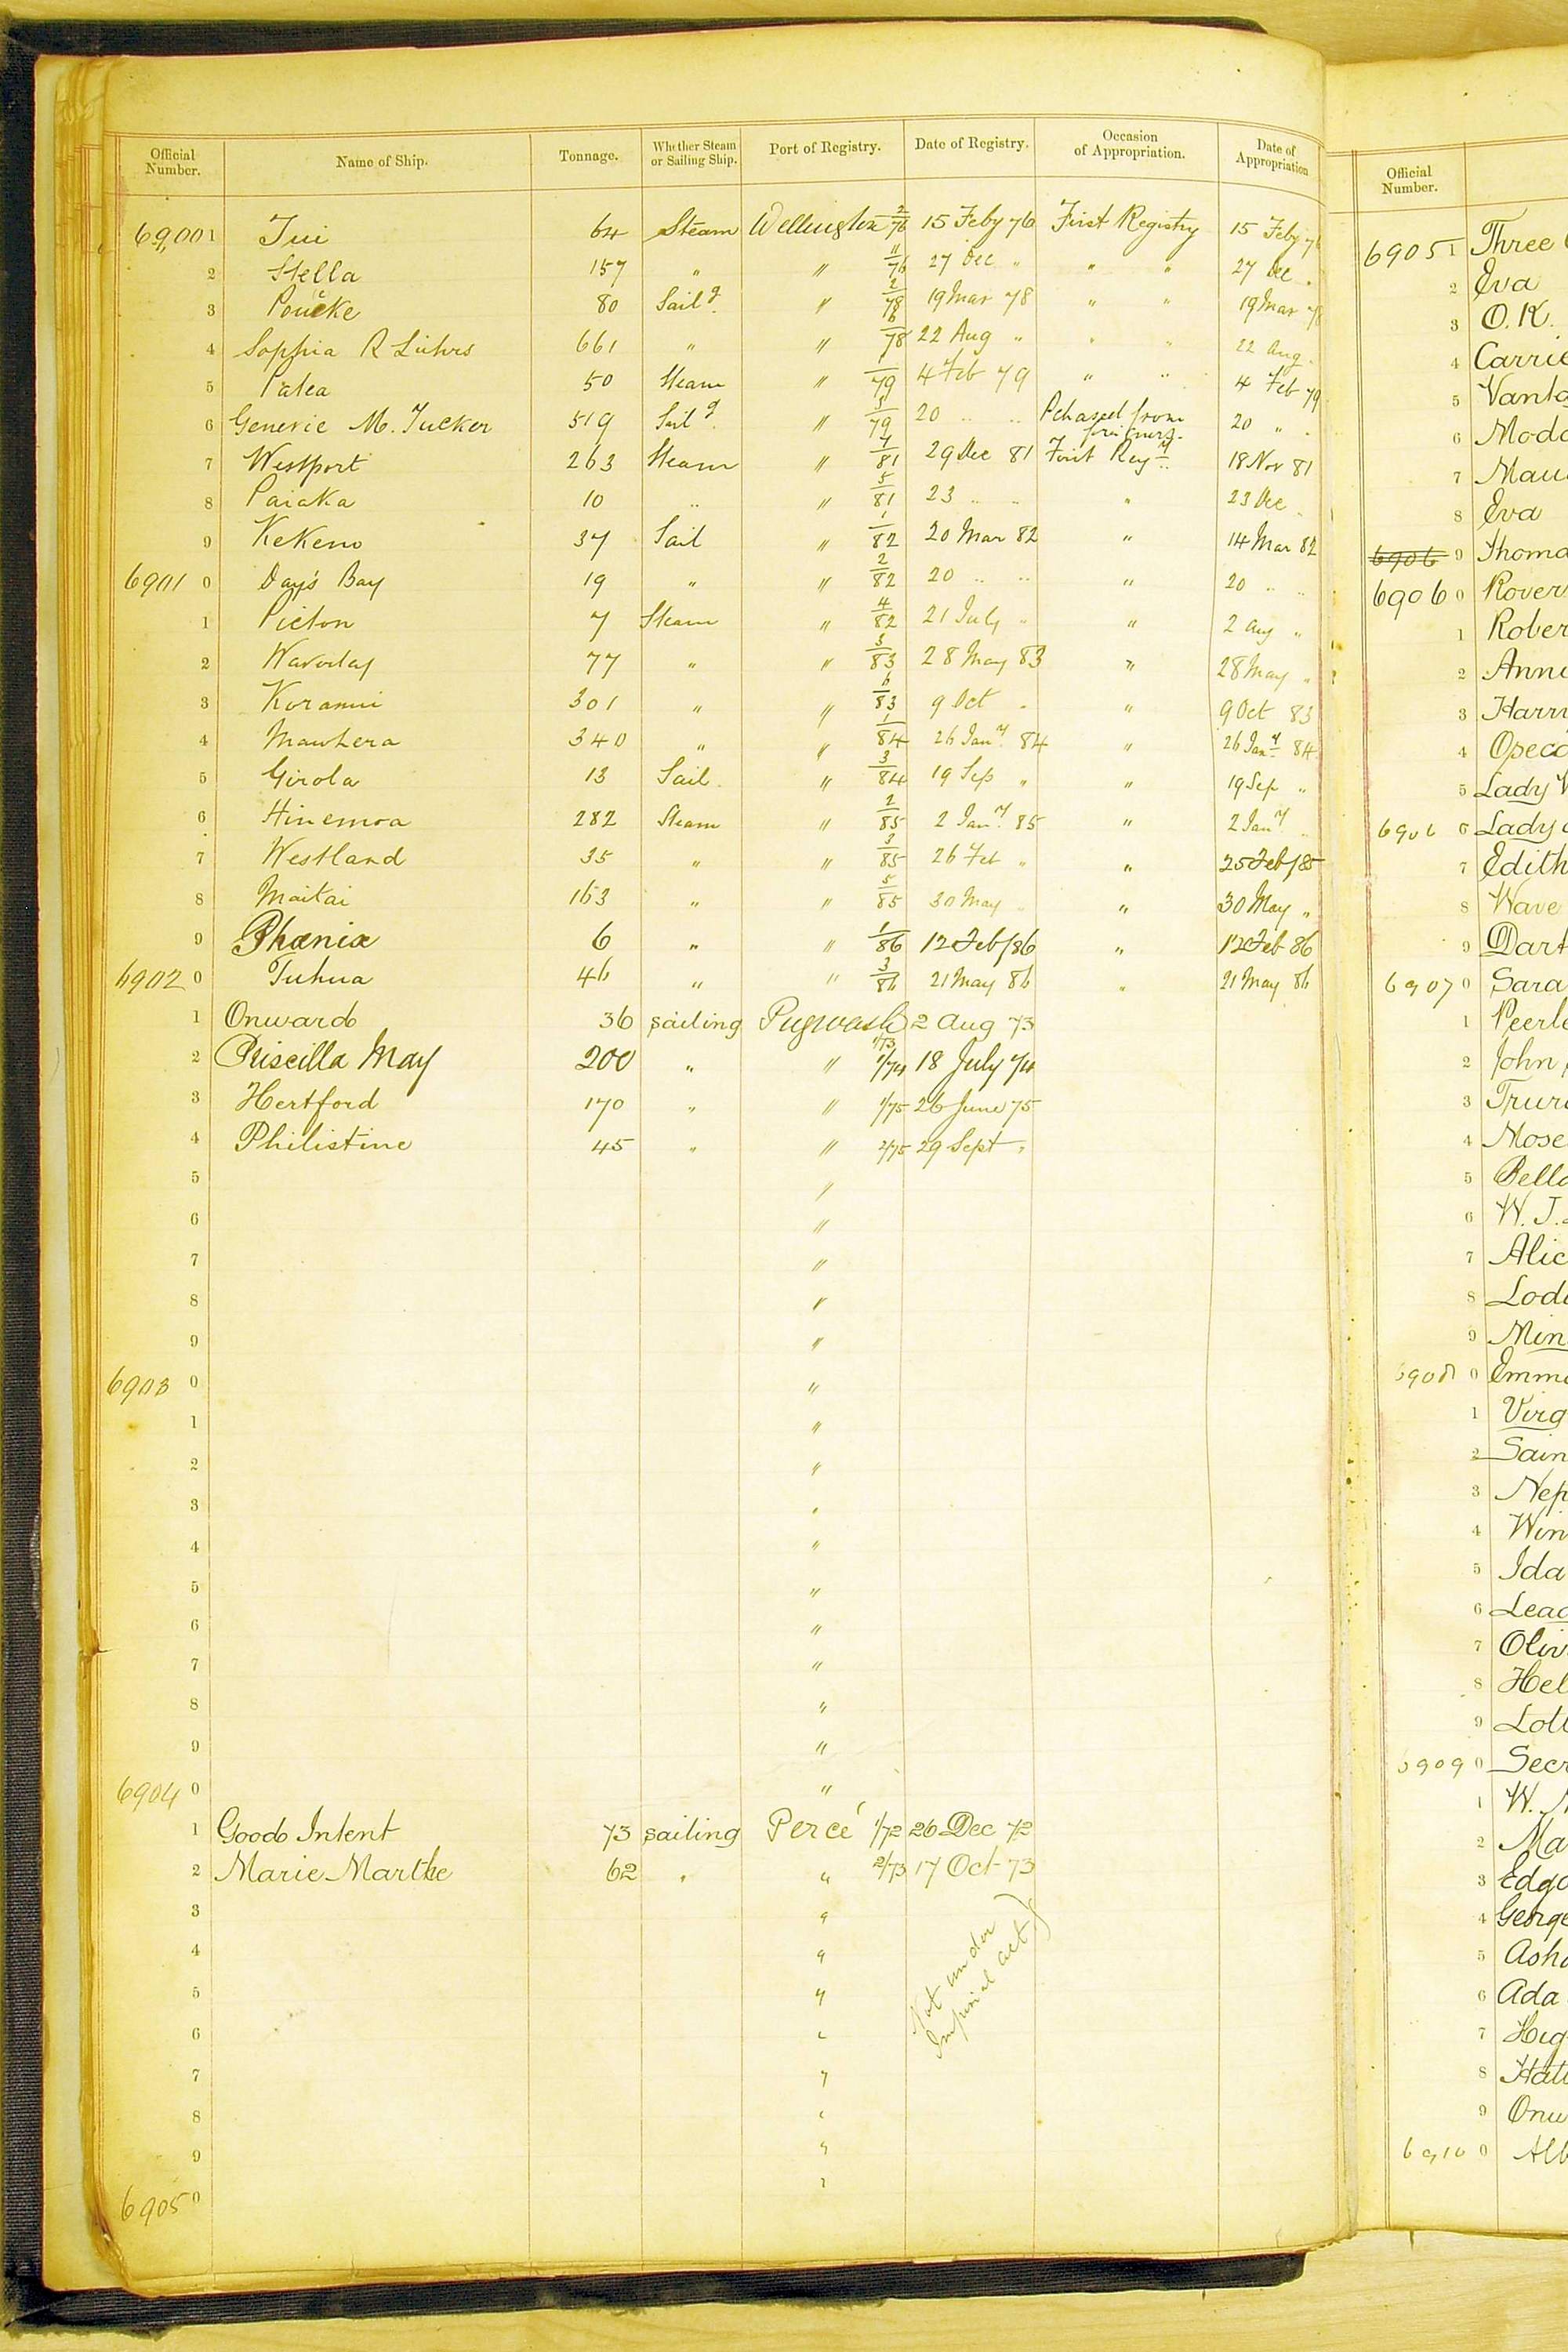 Official Number. Name of Ship. Tonnage. Whether Steam or Sailing Ship. Port of Registry. Date of Registry. Occasion of Appropriation. Date of Appropriation
69,001 Tui 64 Steam Wellington 2/76 15 Feby 76 First Registry 15 Feby 76
2 Stella 157 " " 11/76 27 Dec " " " 27 Dec "
3 80 Sailg " 2/78 19 Mar 78 " " 19 Mar 78
4 Sophia R Luhrs 661 " " 6/78 22 Aug " " " 22 Aug "
5 Patea 50 Steam " 1/79 4 Feb 79 " " 4 Feb 79
6 Generie M. Tucker 519 Sailg " 3/79 20 " " Pchased from foreigners. 20 " "
7 Westport 263 Steam " 7/81 29 Dec 81 First Regy 18 Nov 81
8 Paiaka 10 " " 5/81 23 " " " 23 Dec "
9 Kekeno 37 Sail " 1/82 20 Mar 82 " 14 Mar 82
6901 0 Day's Bay 19 " " 2/82 20 " " " 20 " "
1 Picton 7 Steam " 4/82 21 July " " 2 Aug "
2 Waverley 77 " " 3/83 28 May 83 " 28 May "
3 Koranui 301 " " 6/83 9 Oct " " 9 Oct 83
4 Mawhera 340 " " 1/84 26 Jany 84 " 26 Jany 84
5 Girola 13 Sail " 3/84 19 Sep " " 19 Sep "
6 Hinemoa 282 Steam " 2/85 2 Jany 85 " 2 Jany "
7 Westland 35 " " 3/85 26 Feb " " 25 Feb/85
8 Maitai 163 " " 5/85 30 May " " 30 May "
9 Phœnix 6 " " 1/86 12 Feb/86 " 12 Feb 86
6902 0 Tuhua 46 " " 3/86 21 May 86 " 21 May 86
1 Onward 36 sailing Pugwash 1/73 2 Aug 73
2 Priscilla May 200 " " 1/74 18 July 74
3 Hertford 170 " " 1/75 26 June 75
4 Philistine 45 " " 2/75 29 Sept "
5 "
6 "
7 "
8 "
9 "
6903 0 "
1 "
2 "
3 "
4 "
5 "
6 "
7 "
8 "
9 "
6904 0 "
1 Good Intent 73 sailing Percé 1/72 26 Dec 72
2 Marie Marthe 62 " " 2/73 17 Oct 73
3 "
4 "
5 "
6 "
7 "
8 "
9 "
6905 0 "
Not under
Imperial act
Official Number.
6905 1 Three
2 Eva
3 O.K.
4 Carrie
5
6
7
8 Eva
6906 9 Thoma
6906 0 Rover
1 Rober
2 Anni
3 Harr
4 Opec
5 Lady
6906 6 Lady
7 Edith
8 Wave
9 Dart
6907 0 Sara
1 Peerl
2 John
3 Trur
4 Mose
5 Bell
6 W. J.
7 Alic
8 Lod
9 Min
6908 0 Emm
1 Virg
2 Sain
3 Nep
4 Win
5 Ida
6 Lea
7 Oliv
8 Hel
9 Lot
6909 0 Secr
1 W.
2 Ma
3 Edg
4 George
5 Ash
6 Ada
7 Hig
8 Hat
9 Onw
6910 0 Alb